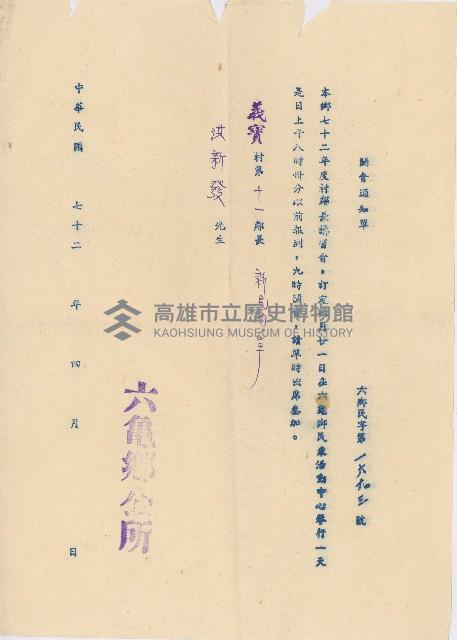 開會通知單
六鄉民字第 號
本鄉七十二年度村鄰長講習會，訂定四月廿一日在六龜鄉民眾活動中心舉行一天
是日上午八時卅分以前報到，九時開會，請準時出席參加。
義寶村第十一鄰長
洪新發 先生
中華民國 七十二 年 四 月 日
六龜鄉公所
高雄市立歷史博物館
KAOHSIUNG MUSEUM OF HISTORY